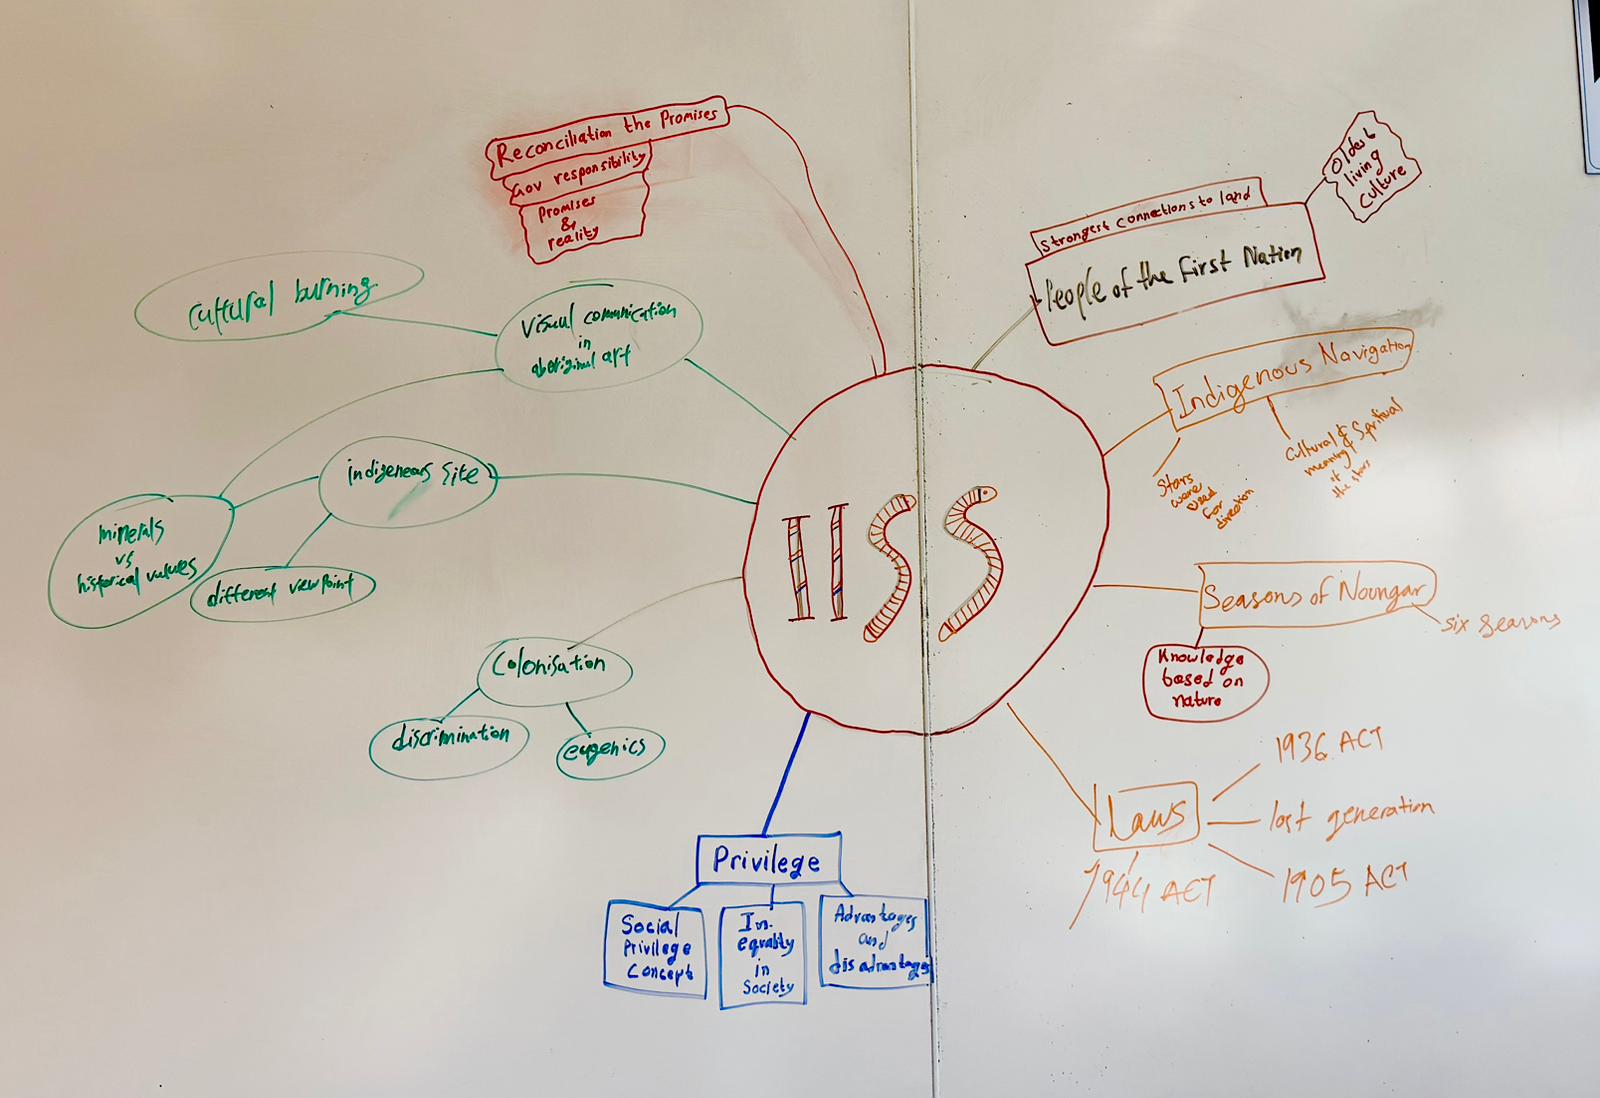 Reconciliation the Promises
Gov responsibility
Promises
&
reality
Cultural burning
Visual comunication
in
aboriginal art
indigeneous site
minerals
vs
historical values
different viewpoint
Colonisation
discrimination
eugenics
HSS
Privilege
Social
Privilege
Concept
In-
equality
in
Society
Advantages
and
disadvantages
Oldest
living
culture
Strongest connections to land
People of the First Nation
Indigenous Navigation
Stars
were
used
for
direction
Cultural &
meaning & Spritual
of
the stars
Seasons of Noongar
six seasons
Knowledge
based on
nature
Laws
1936 ACT
lost generation
1905 ACT
1944 ACT